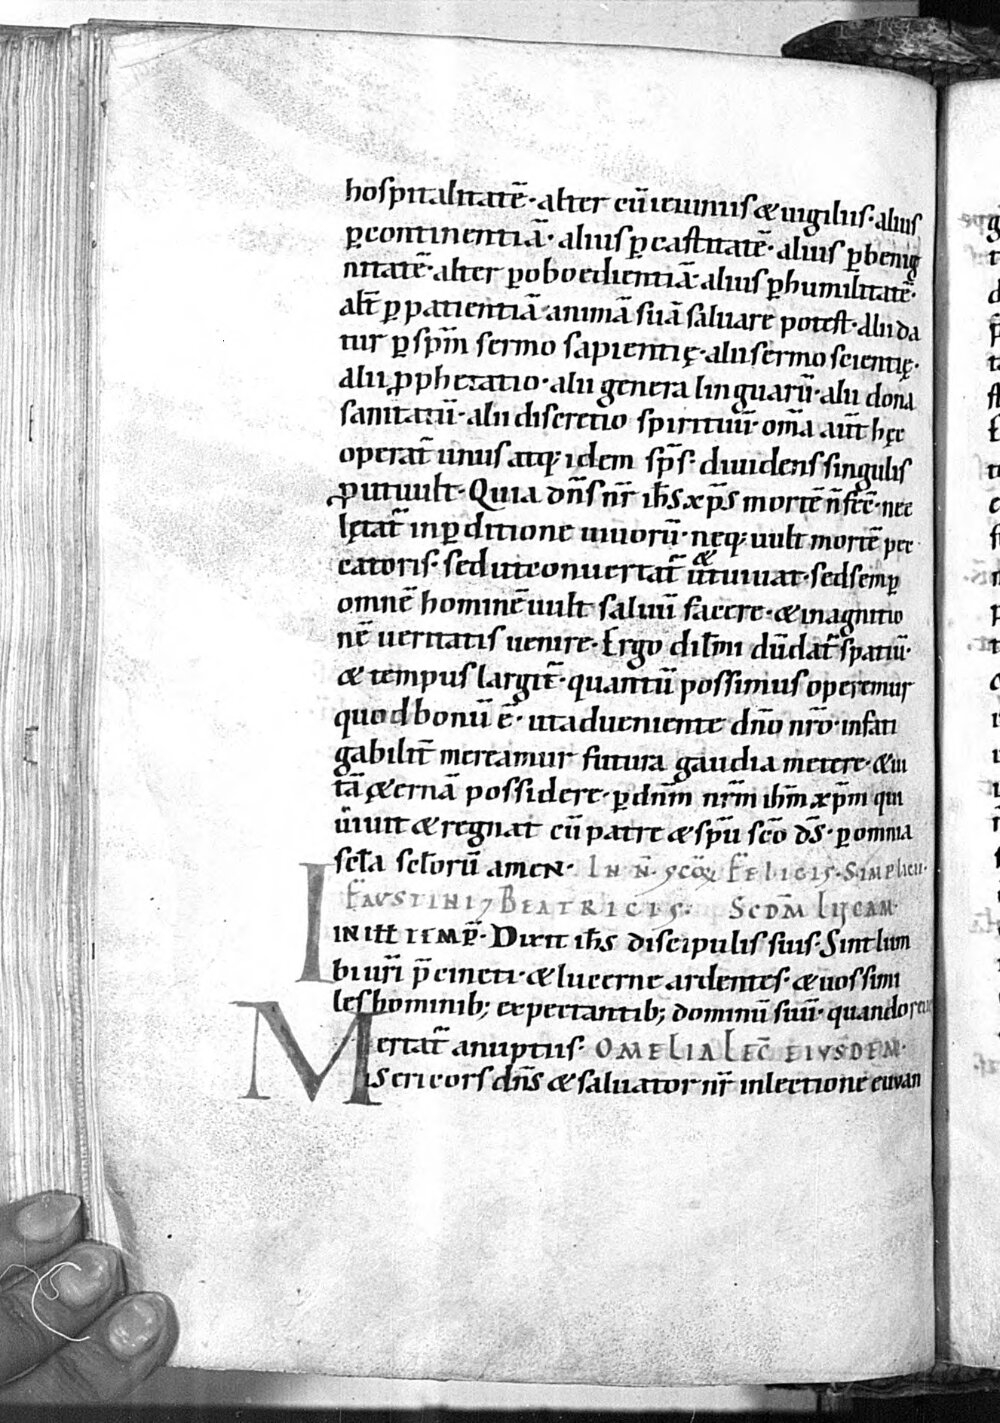 hospitalitatē· alter cū ieiuniis & uigiliis· alius
ꝑ continentiā· alius ꝑ castitatē· alius ꝑ benig
nitatē· alter ꝑ oboedientiā· alius ꝑ humilitatē·
alt̄ ꝑ patientiā· animā suā saluare potest· alii da
tur ꝑ sp̄m sermo sapientię· alii sermo scientię·
alii ꝓphetatio· alii genera linguarū· alii dona
sanitatū· alii discretio spirituū· om̄a aūt hęc
operat̄ unus atq; idem sp̄s· diuidens singulis
ꝓut uult· Quia dn̄s nr̄ ih̄s xp̄s mortē n̄ fec̄· nec
lętat̄ in ꝑditione uiuorū· neq; uult mortē pec
catoris· sed ut conuertat̄ & uiuat· sed semꝑ
omnē hominē uult saluū facere· & in agnitio
nē ueritatis uenire· Ergo dil̄mi dū dat̄ spatiū·
& tempus largit̄· quantū possimus operemur
quod bonū ē· ut adueniente dn̄o nr̄o· infati
gabilit̄ mereamur futura gaudia metere· & ui
tā ęternā possidere· ꝑ dn̄m nr̄m ih̄m xp̄m qui
uiuit & regnat cū patre & sp̄u sc̄o d̄s· ꝑ omnia
sc̄la sc̄lorū amen· In n̄· sc̄oꝝ Felicis· Simplicii·
Faustini ⁊ Beatricis· Scd̄m Lucam·
In ill̄ temp̄· Dixit ih̄s discipulis suis· Sint lum
bi ur̄i p̄cincti· & lucerne ardentes· & uos simi
les hominib; expectantib; dominū suū· quando reu
ertat̄ a nuptiis· Omelia lec̄ eiusdem·
Misericors dn̄s & saluator nr̄ in lectione euuan